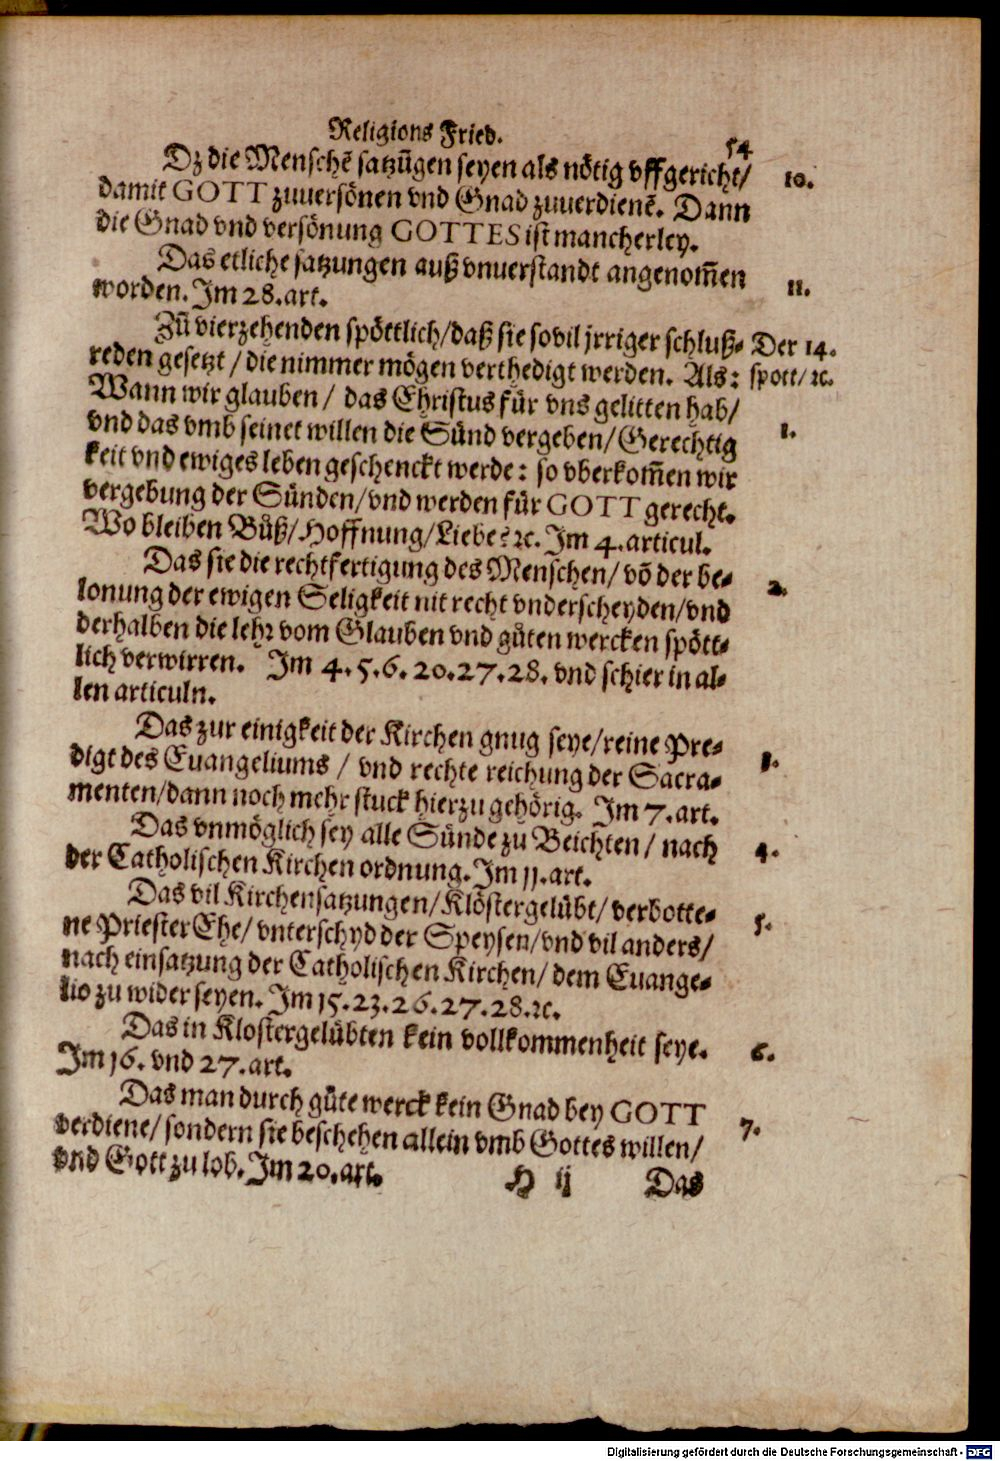 Religions Fried.
54
Dz die Menschẽ satzũgen seyen als nötig vffgericht/ 10.
damit GOTT zuuersönen vnd Gnad zuuerdienẽ. Dann
die Gnad vnd versönung GOTTES ist mancherley.
Das etliche satzungen auß vnuerstandt angenom̃en 11.
worden. Im 28. art.
Zũ vierzehenden spöttlich/ daß sie sovil jrriger schluß- Der 14.
reden gesetzt / die nimmer mögen verthedigt werden. Als: spott/ ꝛc.
Wann wir glauben / das Christus für vns gelitten hab/
vnd das vmb seinet willen die Sünd vergeben/ Gerechtig 1.
keit vnd ewiges leben geschenckt werde: so vberkom̃en wir
vergebung der Sünden/ vnd werden für GOTT gerecht.
Wo bleiben Büß/ Hoffnung/ Liebe? ꝛc. Im 4. articul.
Das sie die rechtfertigung des Menschen/ võ der be- 2.
lonung der ewigen Seligkeit nit recht vnderscheyden/ vnd
derhalben die lehꝛ vom Glauben vnd gůten wercken spött-
lich verwirren. Im 4. 5. 6. 20. 27. 28. vnd schier in al-
len articuln.
Das zur einigkeit der Kirchen gnug seye/ reine Pre- 3.
digt des Euangeliums / vnd rechte reichung der Sacra-
menten/ dann noch mehr stuck hierzu gehörig. Im 7. art.
Das vnmöglich sey alle Sünde zu Beichten / nach 4.
der Catholischen Kirchen ordnung. Im 11. art.
Das vil Kirchensatzungen/ Klöstergelübt/ verbotte- 5.
ne Priester Ehe/ vnterschyd der Speysen/ vnd vil anders/
nach einsatzung der Catholischen Kirchen/ dem Euange-
lio zu wider seyen. Im 15. 23. 26. 27. 28. ꝛc.
Das in Klostergelübten kein vollkommenheit seye. 6.
Im 16. vnd 27. art.
Das man durch gůte werck kein Gnad bey GOTT
verdiene/ sondern sie beschehen allein vmb Gottes willen/ 7.
vnd Gott zu lob. Im 20. art.
H ij Das
Digitalisierung gefördert durch die Deutsche Forschungsgemeinschaft - DFG